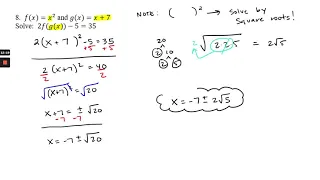 8. f(x) = x² and g(x) = x + 7
Solve: 2f(g(x)) − 5 = 35
2(x+7)² -5 = 35
+5 +5
2(x+7)² = 40
2 2
√(x+7)² = √20
x+7 = ± √20
-7 -7
x = -7 ± √20
NOTE: ( )² → solve by
Square roots!
20
2 10
2 5
2 √2·2·5 = 2√5
x = -7 ± 2√5